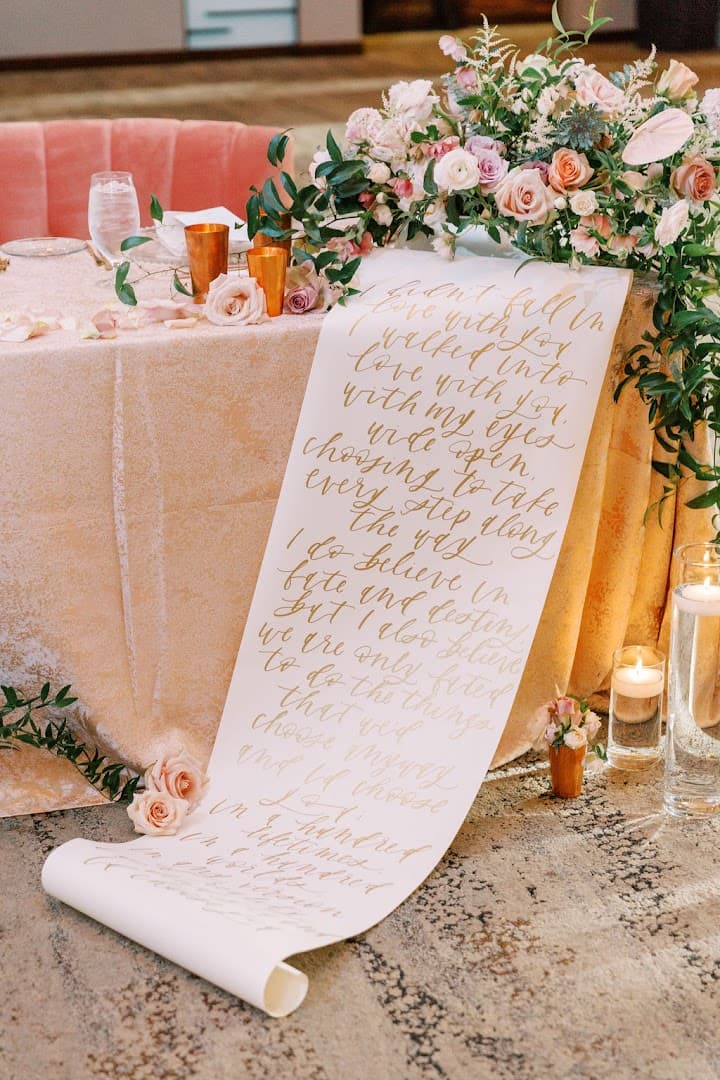 I didn't fall in
love with you
I walked into
love with you,
with my eyes
wide open,
choosing to take
every step along
the way
I do believe in
fate and destiny
but I also believe
we are only fated
to do the things
that we'd
choose anyway
and I'd choose
you;
in a hundred
lifetimes
in a hundred
worlds
in any version